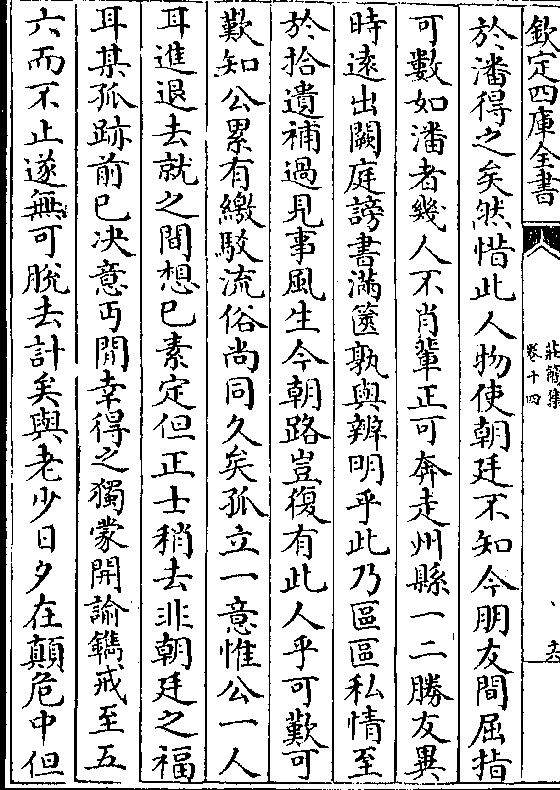 欽定四庫全書
莊簡集
卷十四
於潘得之矣然惜此人物使朝廷不知今朋友間屈指
可數如潘者幾人不肖輩正可奔走州縣一二勝友異
時遠出闕庭謗書滿篋孰與辨明乎此乃區區私情至
於拾遺補過見事風生今朝路豈復有此人乎可歎可
歎知公累有繳駁流俗尚同久矣孤立一意惟公一人
耳進退去就之間想已素定但正士稍去非朝廷之福
耳某孤跡前已决意丐閒幸得之獨蒙開諭鐫戒至五
六而不止遂無可脫去計矣與老少日夕在顛危中但